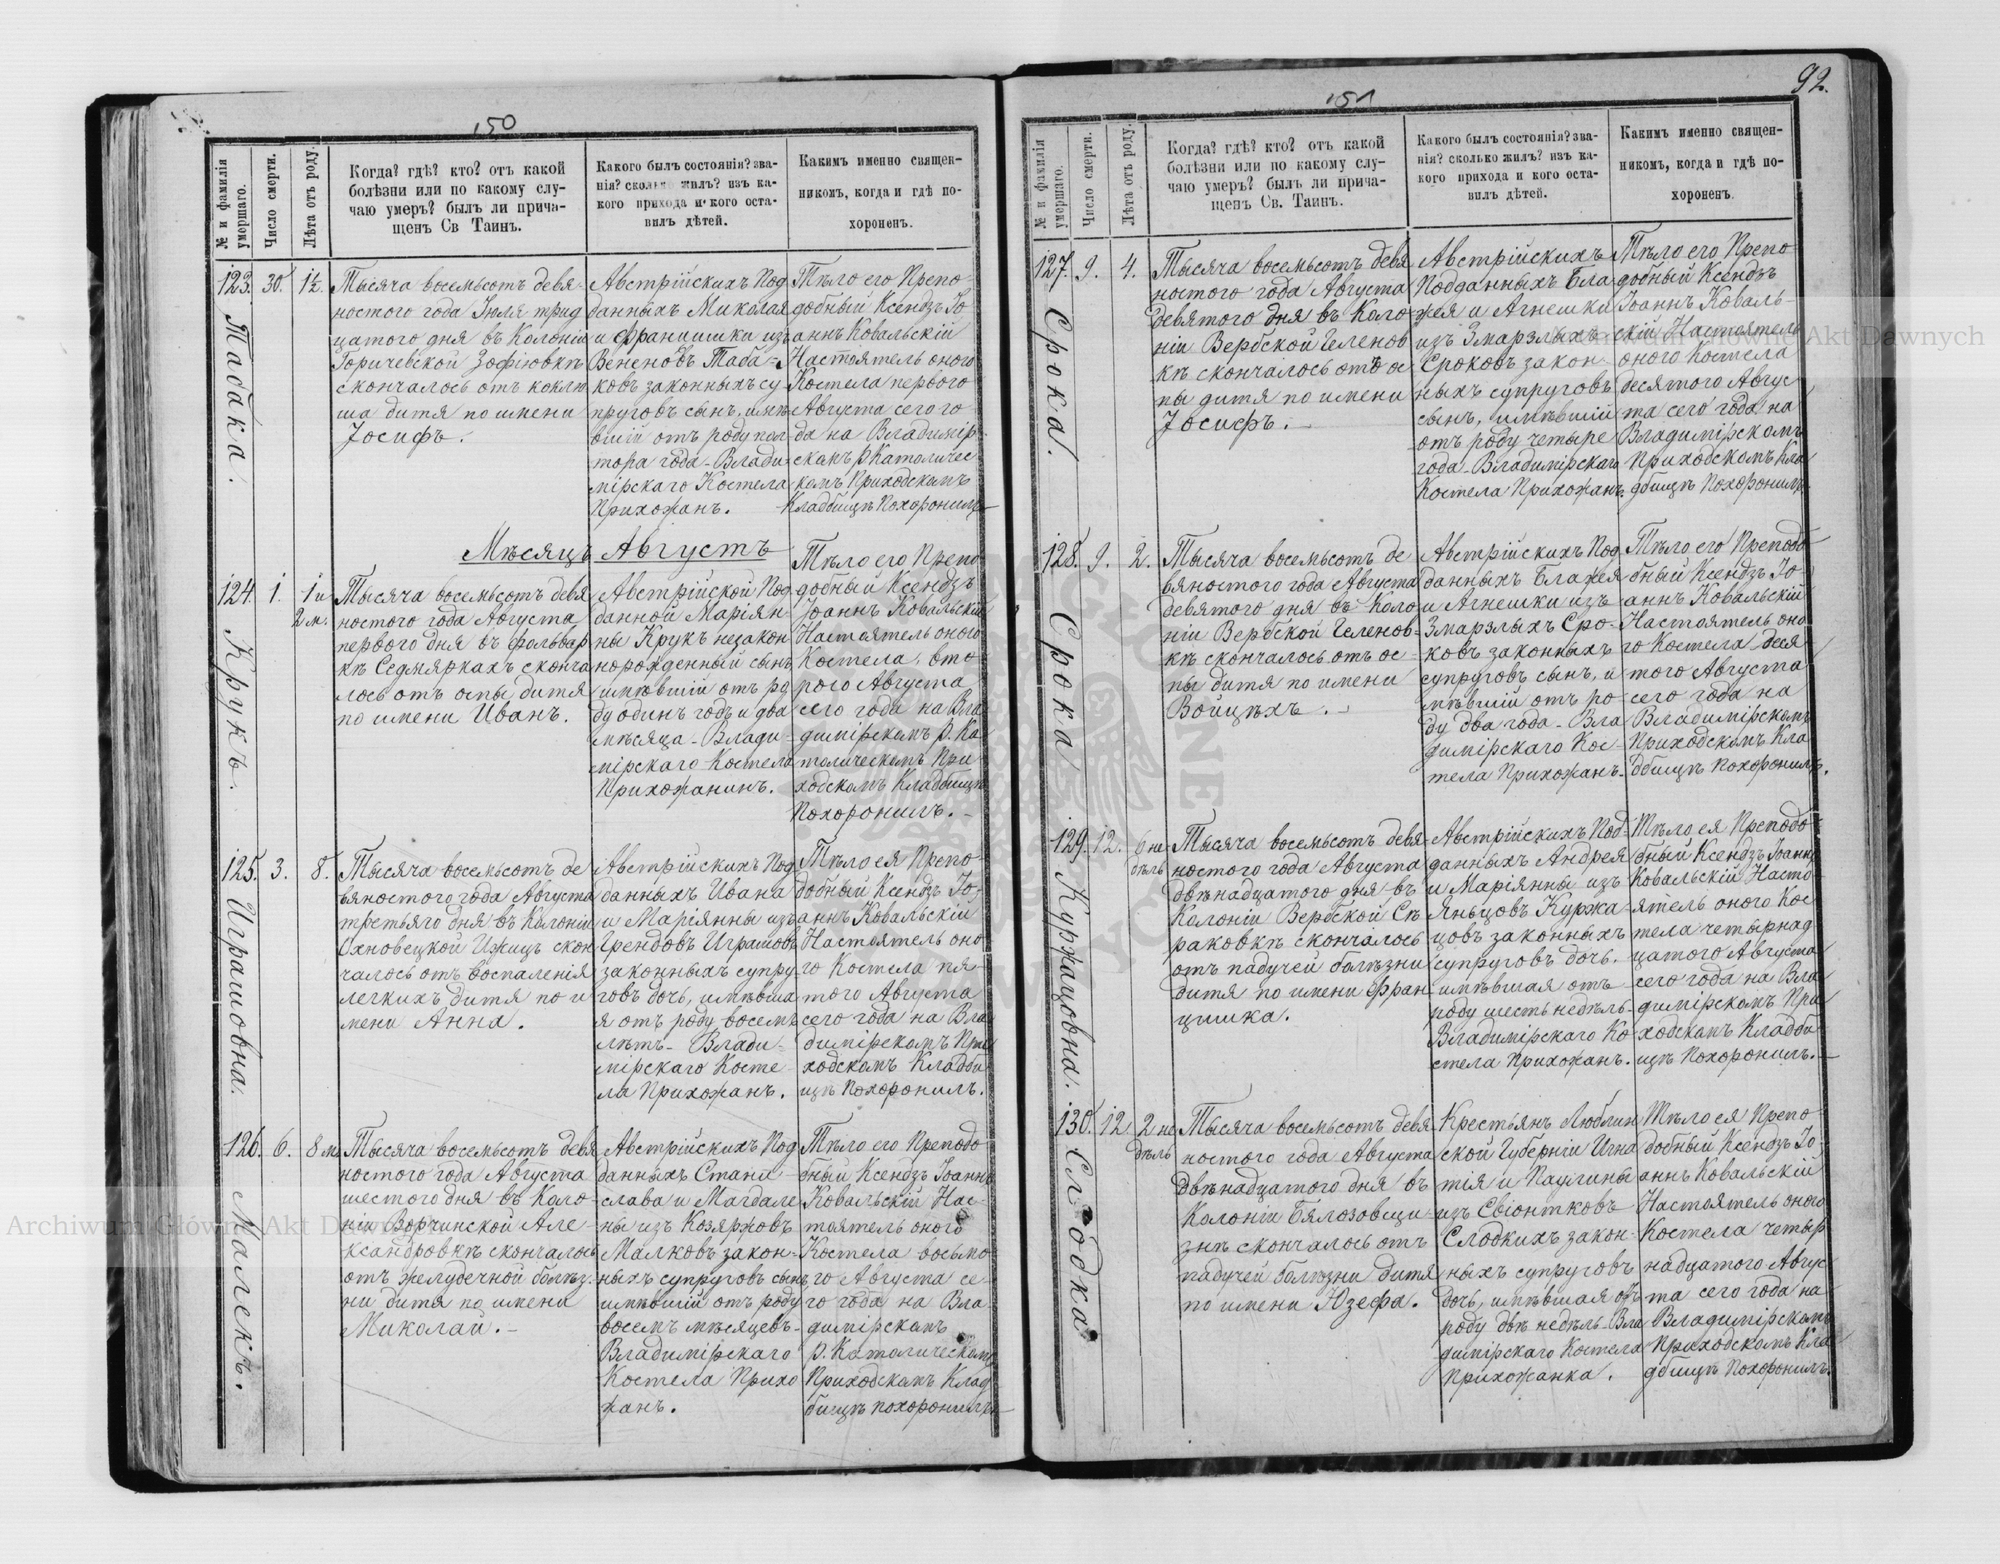 150
№ и фамилія умершаго.
Число смерти.
Лѣта отъ роду.
Когда? гдѣ? кто? отъ какой
болѣзни или по какому слу-
чаю умеръ? былъ ли прича-
щенъ Св Таинъ.
Какого былъ состоянія? зва-
нія? сколько жилъ? изъ ка-
кого прихода и кого оста-
вилъ дѣтей.
Каким­ъ именно священ-
никомъ, когда и гдѣ по-
хороненъ.
123. 30. 1½.
Табака.
Тысяча восемьсотъ девя-
ностого года Іюля трид
цатого дня въ Колоніи
Горичевской Зофіювкѣ
скончалось отъ коклю
ша дитя по имени
Іосифъ.
Австрійскихъ Под
данныхъ Миколая
и Францишки изъ
Вененовъ Таба-
ковъ законныхъ су
пруговъ сынъ, имѣ
вшій отъ роду пол
тора года - Влади
мірскаго Костела
Прихожанъ.
Тѣло его Препо
добный Ксендзъ Іо
аннъ Ковальскій
Настоятель оного
Костела первого
Августа сего го-
да на Владимір-
скомъ р Католичес
комъ Приходскомъ
Кладбищѣ Похоронилъ
Мѣсяцъ Августъ
124. 1. 1 и
2 м.
Крукъ.
Тысяча восемьсотъ девя
ностого года Августа
первого дня въ фольвар
кѣ Седмяркахъ сконча
лось отъ оспы дитя
по имени Иванъ.
Австрійской Под
данной Маріян-
ны Крукъ незакон
норожденный сынъ
имѣвшій отъ ро
ду одинъ годъ и два
мѣсяца - Влади-
мірскаго Костела
Прихожанинъ.
Тѣло его Препо
добный Ксендзъ
Іоаннъ Ковальскій
Настоятель оного
Костела, вто
рого Августа
сего года на Вла
димірскомъ р. Ка
толическомъ При
ходскомъ Кладбищѣ
Похоронилъ. -
125. 3. 8.
Играмовна.
Тысяча восемьсотъ де
вяностого года Августа
третьяго дня въ Колоніи
Охновецкой Ижицъ скон
чалось отъ воспаленія
легкихъ дитя по и
мени Анна.
Австрійскихъ Под
данныхъ Ивана
и Маріянны изъ
Грендовъ Играмовъ
законныхъ супру
говъ дочь, имѣвша
я отъ роду восемь
лѣтъ - Влади-
мірскаго Косте-
ла Прихожанъ.
Тѣло ея Препо-
добный Ксендзъ Іо-
аннъ Ковальскій
Настоятель оно
го Костела пя-
того Августа
сего года на Вла
димірскомъ При
ходскомъ Кладби
щѣ Похоронилъ.
126. 6. 8 м.
Малекъ.
Тысяча восемьсотъ девя
ностого года Августа
шестого дня въ Коло-
ніи Ворчинской Але
ксандровкѣ скончалось
отъ желудечной болѣз-
ни дитя по имени
Миколай. -
Австрійскихъ Под
данныхъ Стани-
слава и Магдале
ны изъ Козяржовъ
Малковъ закон-
ныхъ супруговъ сынъ
имѣвшій отъ роду
восемь мѣсяцевъ -
Владимірскаго
Костела Прихо
жанъ.
Тѣло его Преподо
бный Ксендзъ Іоаннъ
Ковальскій Нас-
тоятель оного
Костела восьмо
го Августа се-
го года на Вла-
димірскомъ
р. Католическомъ
Приходскомъ Клад
бищѣ похоронилъ
151
92.
№ и фамилія умершаго.
Число смерти.
Лѣта отъ роду.
Когда? гдѣ? кто? отъ какой
болѣзни или по какому слу-
чаю умеръ? былъ ли прича-
щенъ Св. Таинъ.
Какого былъ состоянія? зва-
нія? сколько жилъ? изъ ка-
кого прихода и кого оста-
вилъ дѣтей.
Какимъ именно священ-
никомъ, когда и гдѣ по-
хороненъ.
127. 9. 4.
Срока.
Тысяча восемьсотъ девя
ностого года Августа
девятого дня въ Коло-
ніи Вербской Геленов
кѣ скончалось отъ ос
пы дитя по имени
Іосифъ. -
Австрійскихъ
Подданныхъ Бла
жея и Агнешки
изъ Змарзлыхъ
Сроковъ закон-
ныхъ супруговъ
сынъ, имѣвшій
отъ роду четыре
года - Владимірскаго
Костела Прихожанъ.
Тѣло его Препо
добный Ксендзъ
Іоаннъ Коваль-
скій Настоятель
оного Костела
десятого Авгус
та сего года на
Владимірскомъ
Приходскомъ Кла
дбищѣ Похоронилъ
128. 9. 2.
Срока
Тысяча восемьсотъ де
вяностого года Августа
девятого дня въ Коло
ніи Вербской Геленов-
кѣ скончалось отъ ос-
пы дитя по имени
Войцѣхъ. -
Австрійскихъ Под
данныхъ Блажея
и Агнешки изъ
Змарзлыхъ Сро-
ковъ законныхъ
супруговъ сынъ, и
мѣвшій отъ ро-
ду два года - Вла
димірскаго Кос-
тела Прихожанъ.
Тѣло его Преподо
бный Ксендзъ Іо-
аннъ Ковальскій
Настоятель оно
го Костела деся-
того Августа
сего года на
Владимірскомъ
Приходскомъ Кла
дбищѣ Похоронилъ.
129. 12. 6 не
дѣль
Куржацовна.
Тысяча восемьсотъ девя
ностого года Августа
двѣнадцатого дня въ
Колоніи Вербской Сѣ
раковкѣ скончалось
отъ падучей болѣзни
дитя по имени Фран
цишка.
Австрійскихъ Под-
данныхъ Андрея
и Маріянны изъ
Яньцовъ Куржа-
цовъ законныхъ
супруговъ дочь.
имѣвшая отъ
роду шесть недѣль-
Владимірскаго Ко-
стела Прихожанъ.
Тѣло ея Преподо
бный Ксендзъ Іоаннъ
Ковальскій Насто-
ятель оного Кос
тела четырнад
цатого Августа
сего года на Вла
димірскомъ При
ходскомъ Кладби-
щѣ Похоронилъ. -
130. 12 2 не
дѣль
Слодка
Тысяча восемьсотъ девя
ностого года Августа
двѣнадцатого дня въ
Колоніи Бялозовщи-
знѣ скончалось отъ
падучей болѣзни дитя
по имени Юзефа.
Крестьянъ Люблин
ской Губерніи Игна
тія и Паулины
изъ Свіонтковъ
Слодкихъ закон-
ныхъ супруговъ
дочь, имѣвшая отъ
роду двѣ недѣль - Вла
димірскаго Костела
Прихожанка.
Тѣло ея Препо-
добный Ксендзъ Іо-
аннъ Ковальскій
Настоятель оного
Костела четыр
надцатого Авгус
та сего года на
Владимірскомъ
Приходскомъ Кла
дбищѣ Похоронилъ.
Archiwum Główne Akt Dawnych
Archiwum Główne Akt Dawnych